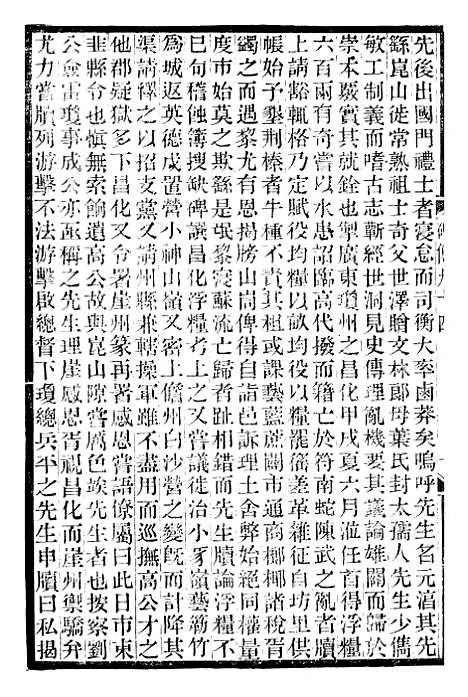 先後出國門禮士者寢忘而司衡大率鹵莽矣嗚呼先生名元滔其先
繇崑山徙常熟祖士奇父世澤贈文林郎母葉氏封太孺人先生少儁
敏工制義而嗜古志斬經世洞見史傳理亂機要其議論雄闊而歸於
崇禾嚴實其就銓也掣廣東瓊州之昌化甲戌夏六月涖任前官浮糧
六百兩有奇嘗以水田為患詔臨高代撥而籍亡於符南蛇陳武之亂者牘
上請豁輒格乃定賦役均以畝均役以糧罷徭差革雜征自坊里供
帳始予墾荆榛者牛種不或課藝藍蔗闢市通商椰椰諸稅胥
蠲之而遇黎尤有恩揭膀山甸俾得自詣邑訴理土舍弊始絕同權量
度市始莫之欺繇是氓黎寖蘇流亡歸者趾相錯而先生牘論浮糧不
已旬稽蝕簿搜缺碑議昌化浮糧考上之又嘗議徙治小㟏嶺藝簕竹
為城返英德戍畱營小神山嶺又嘗上儋州白沙營之變旣而計降其
渠請釋之以招支黨又請州縣兼轄操軍雖不盡用而巡撫高公才之
他郡疑獄多下昌化又令署崖州篆再署感恩嘗語僚屬曰此日市東
韭縣令也愼無索餉遺高公故與崑山隙嘗厲色埃先生者也按察劉
公愈雷瓊事成公亦亟稱之先生理崖感恩胥視昌化而崖州禦驕弁
尤力嘗牘列游擊不法游擊啟總督下瓊總兵平之先生申牘曰私揭